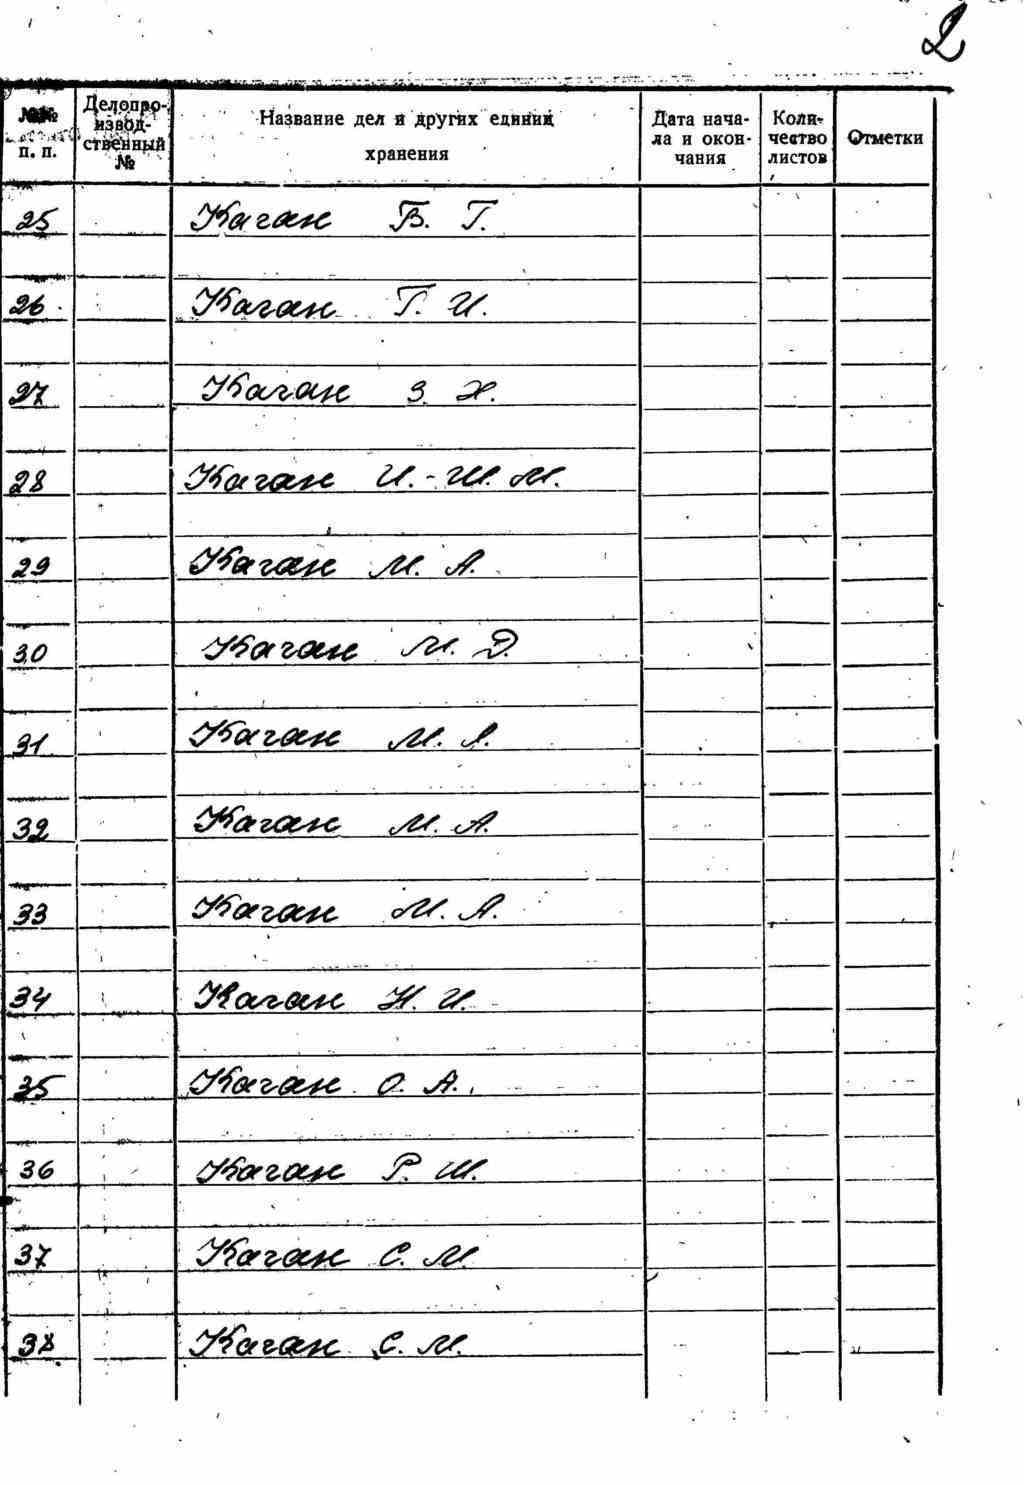 2
№№ п. п. Делопро- извод- ственный № Название дел и других единиц хранения Дата нача- ла и окон- чания Коли- чество листов Отметки
25 Каган Б. Г.
26 Каган Г. И.
27 Каган З. Х.
28 Каган И.-Ш. М.
29 Каган М. А.
30 Каган М. Д.
31 Каган М. Л.
32 Каган М. А.
33 Каган М. А.
34 Каган Н. И.
35 Каган О. А.
36 Каган Р. Ш.
37 Каган С. М.
38 Каган С. М.